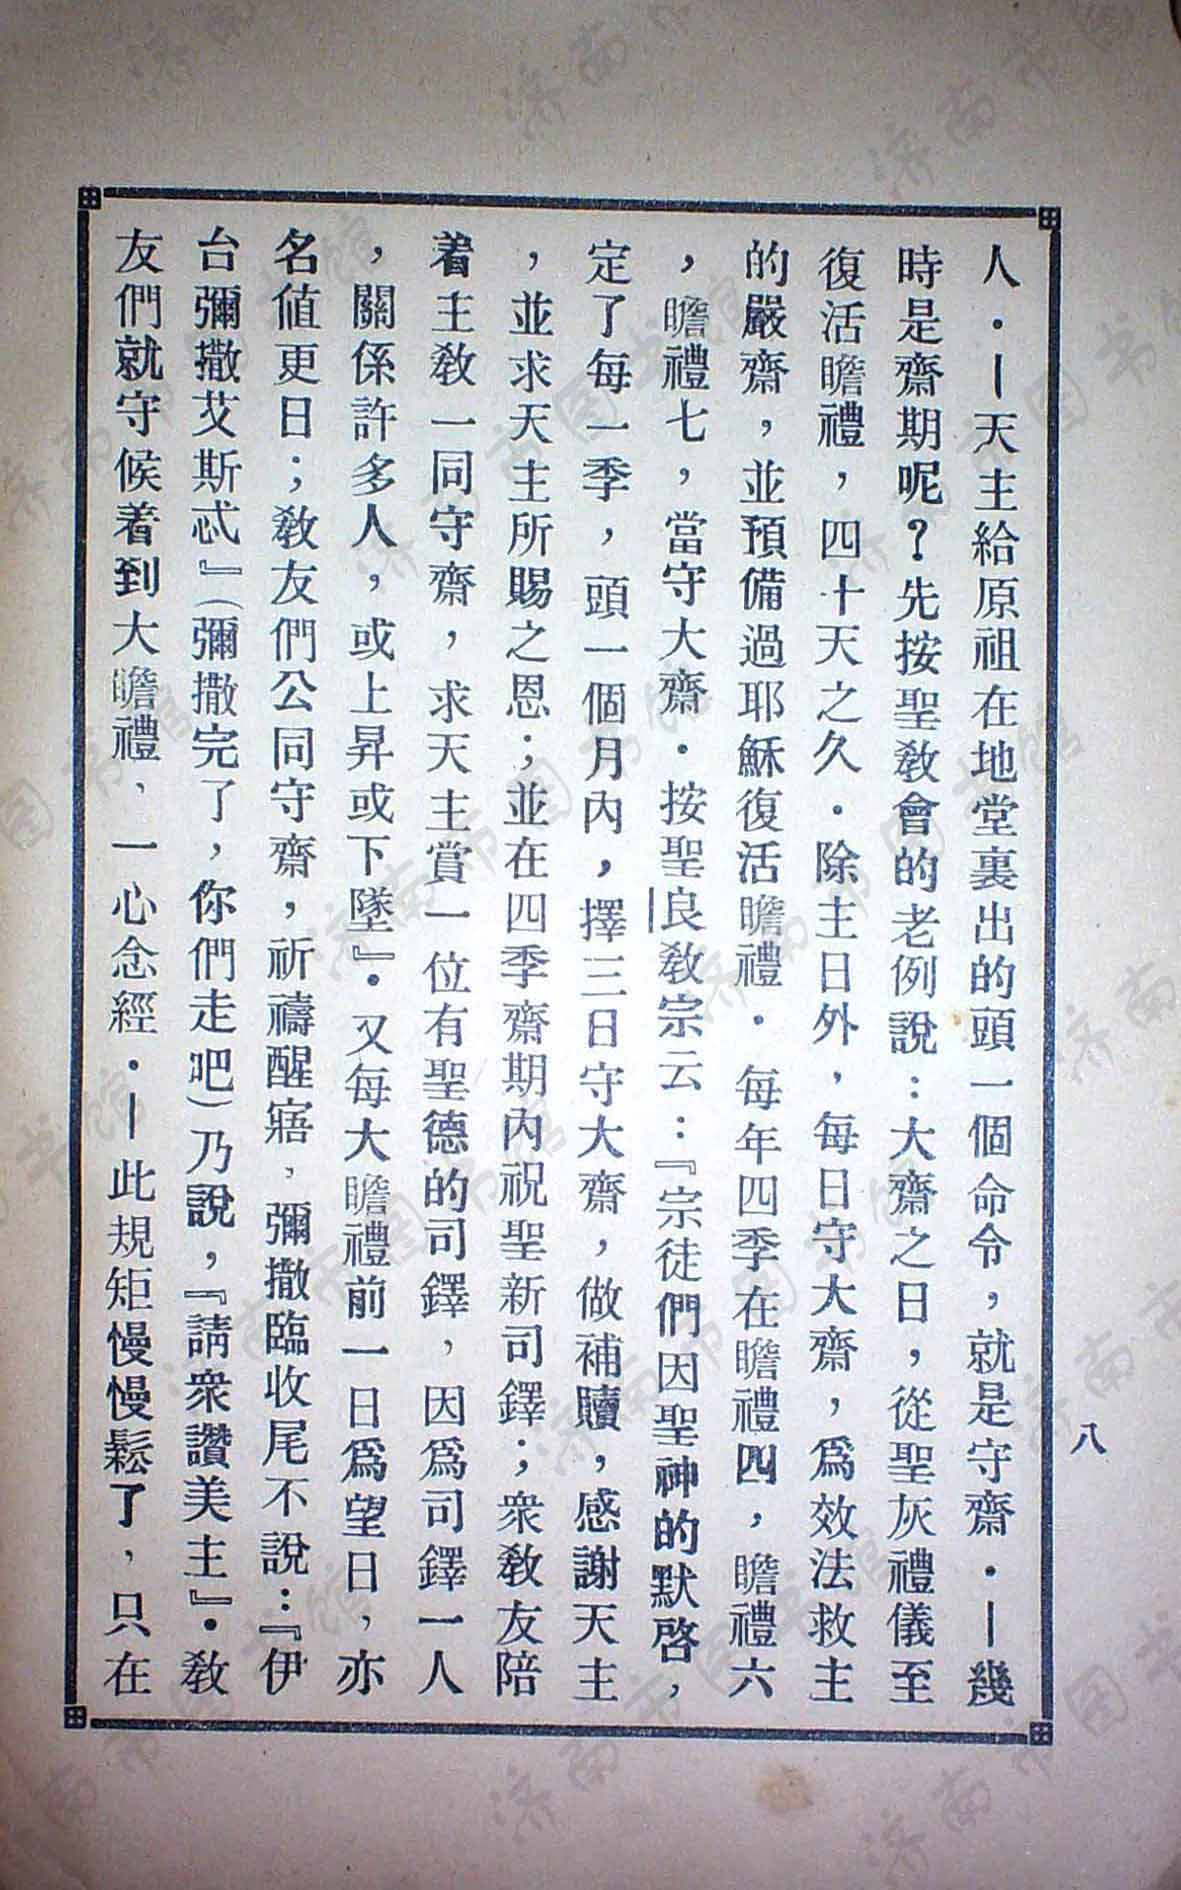 八
人．—天主給原祖在地堂裏出的頭一個命令，就是守齋．—幾
時是齋期呢？先按聖教會的老例說：大齋之日，從聖灰禮儀至
復活瞻禮，四十天之久．除主日外，每日守大齋，爲效法救主
的嚴齋，並預備過耶穌復活瞻禮．每年四季在瞻禮四，瞻禮六
，瞻禮七，當守大齋．按聖良教宗云：『宗徒們因聖神的默啓，
定了每一季，頭一個月內，擇三日守大齋，做補贖，感謝天主
，並求天主所賜之恩；並在四季齋期內祝聖新司鐸；衆教友陪
着主教一同守齋，求天主賞一位有聖德的司鐸，因爲司鐸一人
，關係許多人，或上昇或下墜』．又每大瞻禮前一日爲望日，亦
名值更日；教友們公同守齋，祈禱醒寤，彌撒臨收尾不說：『伊
台彌撒艾斯忒』（彌撒完了，你們走吧）乃說，『請衆讚美主』．教
友們就守候着到大瞻禮，一心念經．—此規矩慢慢鬆了，只在
济南市图书馆